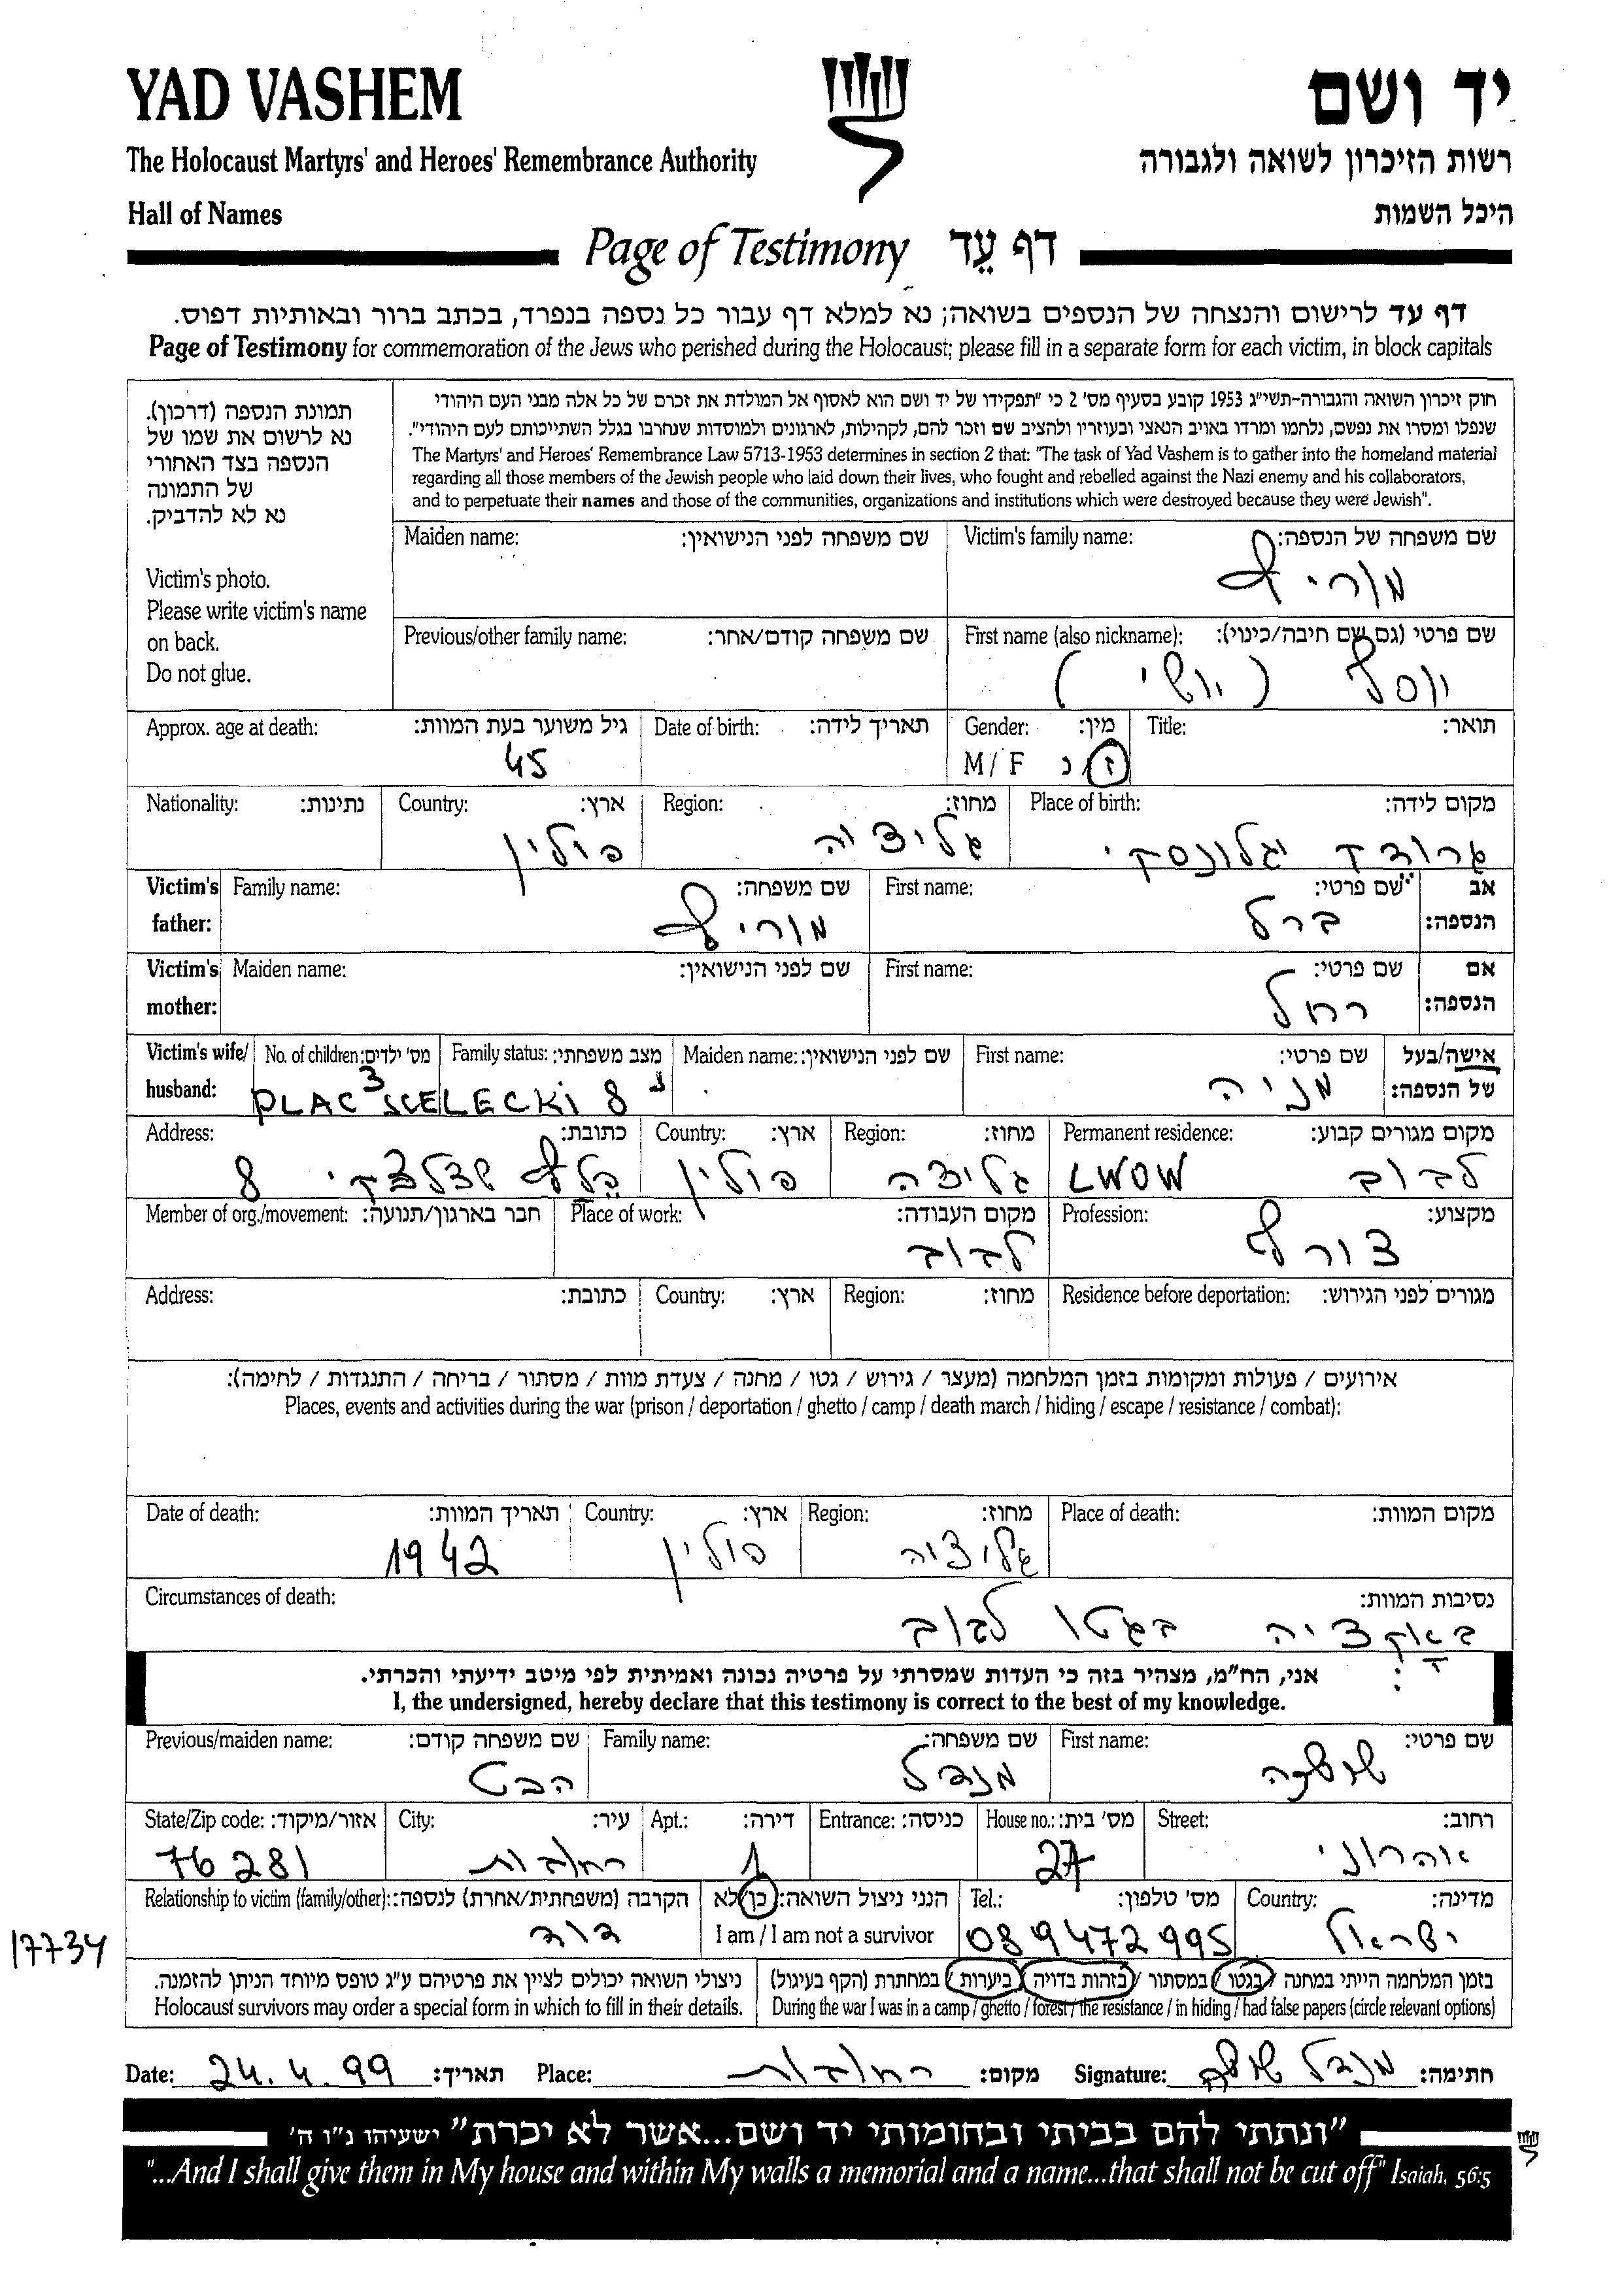 YAD VASHEM
יד ושם
The Holocaust Martyrs' and Heroes' Remembrance Authority
רשות הזיכרון לשואה ולגבורה
Hall of Names
היכל השמות
Page of Testimony דף עֵד
דף עד לרישום והנצחה של הנספים בשואה; נא למלא דף עבור כל נספה בנפרד, בכתב ברור ובאותיות דפוס.
Page of Testimony for commemoration of the Jews who perished during the Holocaust; please fill in a separate form for each victim, in block capitals
תמונת הנספה (דרכון).
נא לרשום את שמו של
הנספה בצד האחורי
של התמונה
נא לא להדביק.
Victim's photo.
Please write victim's name
on back.
Do not glue.
חוק זיכרון השואה והגבורה-תשי"ג 1953 קובע בסעיף מס' 2 כי "תפקידו של יד ושם הוא לאסוף אל המולדת את זכרם של כל אלה מבני העם היהודי
שנפלו ומסרו את נפשם, נלחמו ומרדו באויב הנאצי ובעוזריו ולהציב שם וזכר להם, לקהילות, לארגונים ולמוסדות שנחרבו בגלל השתייכותם לעם היהודי".
The Martyrs' and Heroes' Remembrance Law 5713-1953 determines in section 2 that: "The task of Yad Vashem is to gather into the homeland material
regarding all those members of the Jewish people who laid down their lives, who fought and rebelled against the Nazi enemy and his collaborators,
and to perpetuate their names and those of the communities, organizations and institutions which were destroyed because they were Jewish".
Maiden name: שם משפחה לפני הנישואין: Victim's family name: שם משפחה של הנספה:
מוריף
Previous/other family name: שם משפחה קודם/אחר: First name (also nickname): שם פרטי (גם שם חיבה/כינוי):
יוסף (יושי)
Approx. age at death: גיל משוער בעת המוות: Date of birth: תאריך לידה: Gender: מין: Title: תואר:
45 M / F ז/נ
Nationality: נתינות: Country: ארץ: Region: מחוז: Place of birth: מקום לידה:
פולין גליציה גרודק יגלונסקי
Victim's father: Family name: שם משפחה: First name: שם פרטי: אב הנספה:
מוריף ברל
Victim's mother: Maiden name: שם לפני הנישואין: First name: שם פרטי: אם הנספה:
רחל
Victim's wife/ husband: No. of children: מס' ילדים: Family status: מצב משפחתי: Maiden name: שם לפני הנישואין: First name: שם פרטי: אישה/בעל של הנספה:
3 נ מניה
PLAC 8
Address: כתובת: Country: ארץ: Region: מחוז: Permanent residence: מקום מגורים קבוע:
8 פולין גליציה LWOW לבוב
Member of org./movement: חבר בארגון/תנועה: Place of work: מקום העבודה: Profession: מקצוע:
לבוב צורף
Address: כתובת: Country: ארץ: Region: מחוז: Residence before deportation: מגורים לפני הגירוש:
אירועים / פעולות ומקומות בזמן המלחמה (מעצר / גירוש / גטו / מחנה / צעדת מוות / מסתור / בריחה / התנגדות / לחימה):
Places, events and activities during the war (prison / deportation / ghetto / camp / death march / hiding / escape / resistance / combat):
Date of death: תאריך המוות: Country: ארץ: Region: מחוז: Place of death: מקום המוות:
1942 פולין גליציה
Circumstances of death: נסיבות המוות:
באקציה בגטו לבוב
אני, הח"מ, מצהיר בזה כי העדות שמסרתי על פרטיה נכונה ואמיתית לפי מיטב ידיעתי והכרתי.
I, the undersigned, hereby declare that this testimony is correct to the best of my knowledge.
Previous/maiden name: שם משפחה קודם: Family name: שם משפחה: First name: שם פרטי:
הבט מנדל שושנה
State/Zip code: אזור/מיקוד: City: עיר: Apt.: דירה: Entrance: כניסה: House no.: מס' בית: Street: רחוב:
76281 רחובות 1 27 אהרוני
Relationship to victim (family/other): הקרבה (משפחתית/אחרת) לנספה: הנני ניצול השואה: כן/לא Tel.: מס' טלפון: Country: מדינה:
דוד I am / I am not a survivor 089472995 ישראל
17734
ניצולי השואה יכולים לציין את פרטיהם ע"ג טופס מיוחד הניתן להזמנה. בזמן המלחמה הייתי במחנה / בגטו / במסתור / בזהות בדויה / ביערות / במחתרת (הקף בעיגול)
Holocaust survivors may order a special form in which to fill in their details. During the war I was in a camp / ghetto / forest / the resistance / in hiding / had false papers (circle relevant options)
Date: 24.4.99 תאריך: Place: רחובות מקום: Signature: מנדל שושנה חתימה:
"ונתתי להם בביתי ובחומותי יד ושם...אשר לא יכרת" ישעיהו נ"ו ה'
"...And I shall give them in My house and within My walls a memorial and a name...that shall not be cut off" Isaiah, 56:5